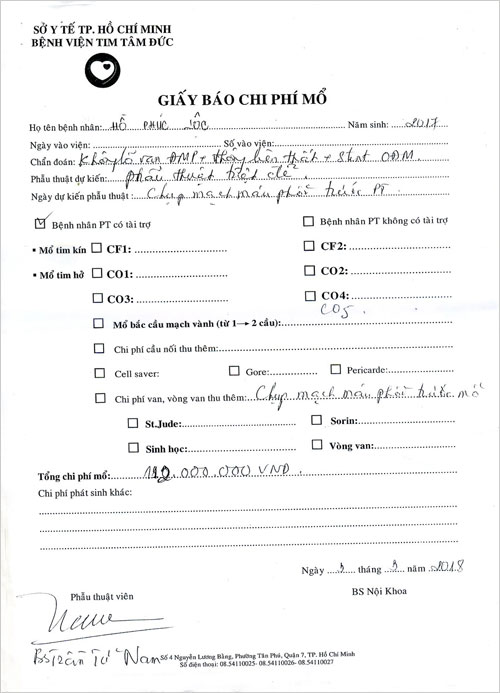 SỞ Y TẾ TP. HỒ CHÍ MINH
BỆNH VIỆN TIM TÂM ĐỨC
GIẤY BÁO CHI PHÍ MỔ
Họ tên bệnh nhân: HỒ PHÚC LỘC Năm sinh: 2017
Ngày vào viện: Số vào viện:
Chẩn đoán: Không lỗ van ĐMP + thông liên thất + Stent ODM
Phẫu thuật dự kiến: phẫu thuật triệt để
Ngày dự kiến phẫu thuật: Chụp mạch máu phổi trước PT.
Bệnh nhân PT có tài trợ Bệnh nhân PT không có tài trợ
• Mổ tim kín CF1: CF2:
• Mổ tim hở CO1: CO2:
CO3: CO4:
CO5.
Mổ bắc cầu mạch vành (từ 1→ 2 cầu):
Chi phí cầu nối thu thêm:
Cell saver: Gore: Pericarde:
Chi phí van, vòng van thu thêm: Chụp mạch máu phổi trước mổ
St.Jude: Sorin:
Sinh học: Vòng van:
Tổng chi phí mổ: 112.000.000 VNĐ.
Chi phí phát sinh khác:
Ngày 3 tháng 3 năm 2018
Phẫu thuật viên BS Nội Khoa
BS Trần Tú Nam
Số 4 Nguyễn Lương Bằng, Phường Tân Phú, Quận 7, TP. Hồ Chí Minh
Số điện thoại: 08.54110025- 08.54110026- 08.54110027